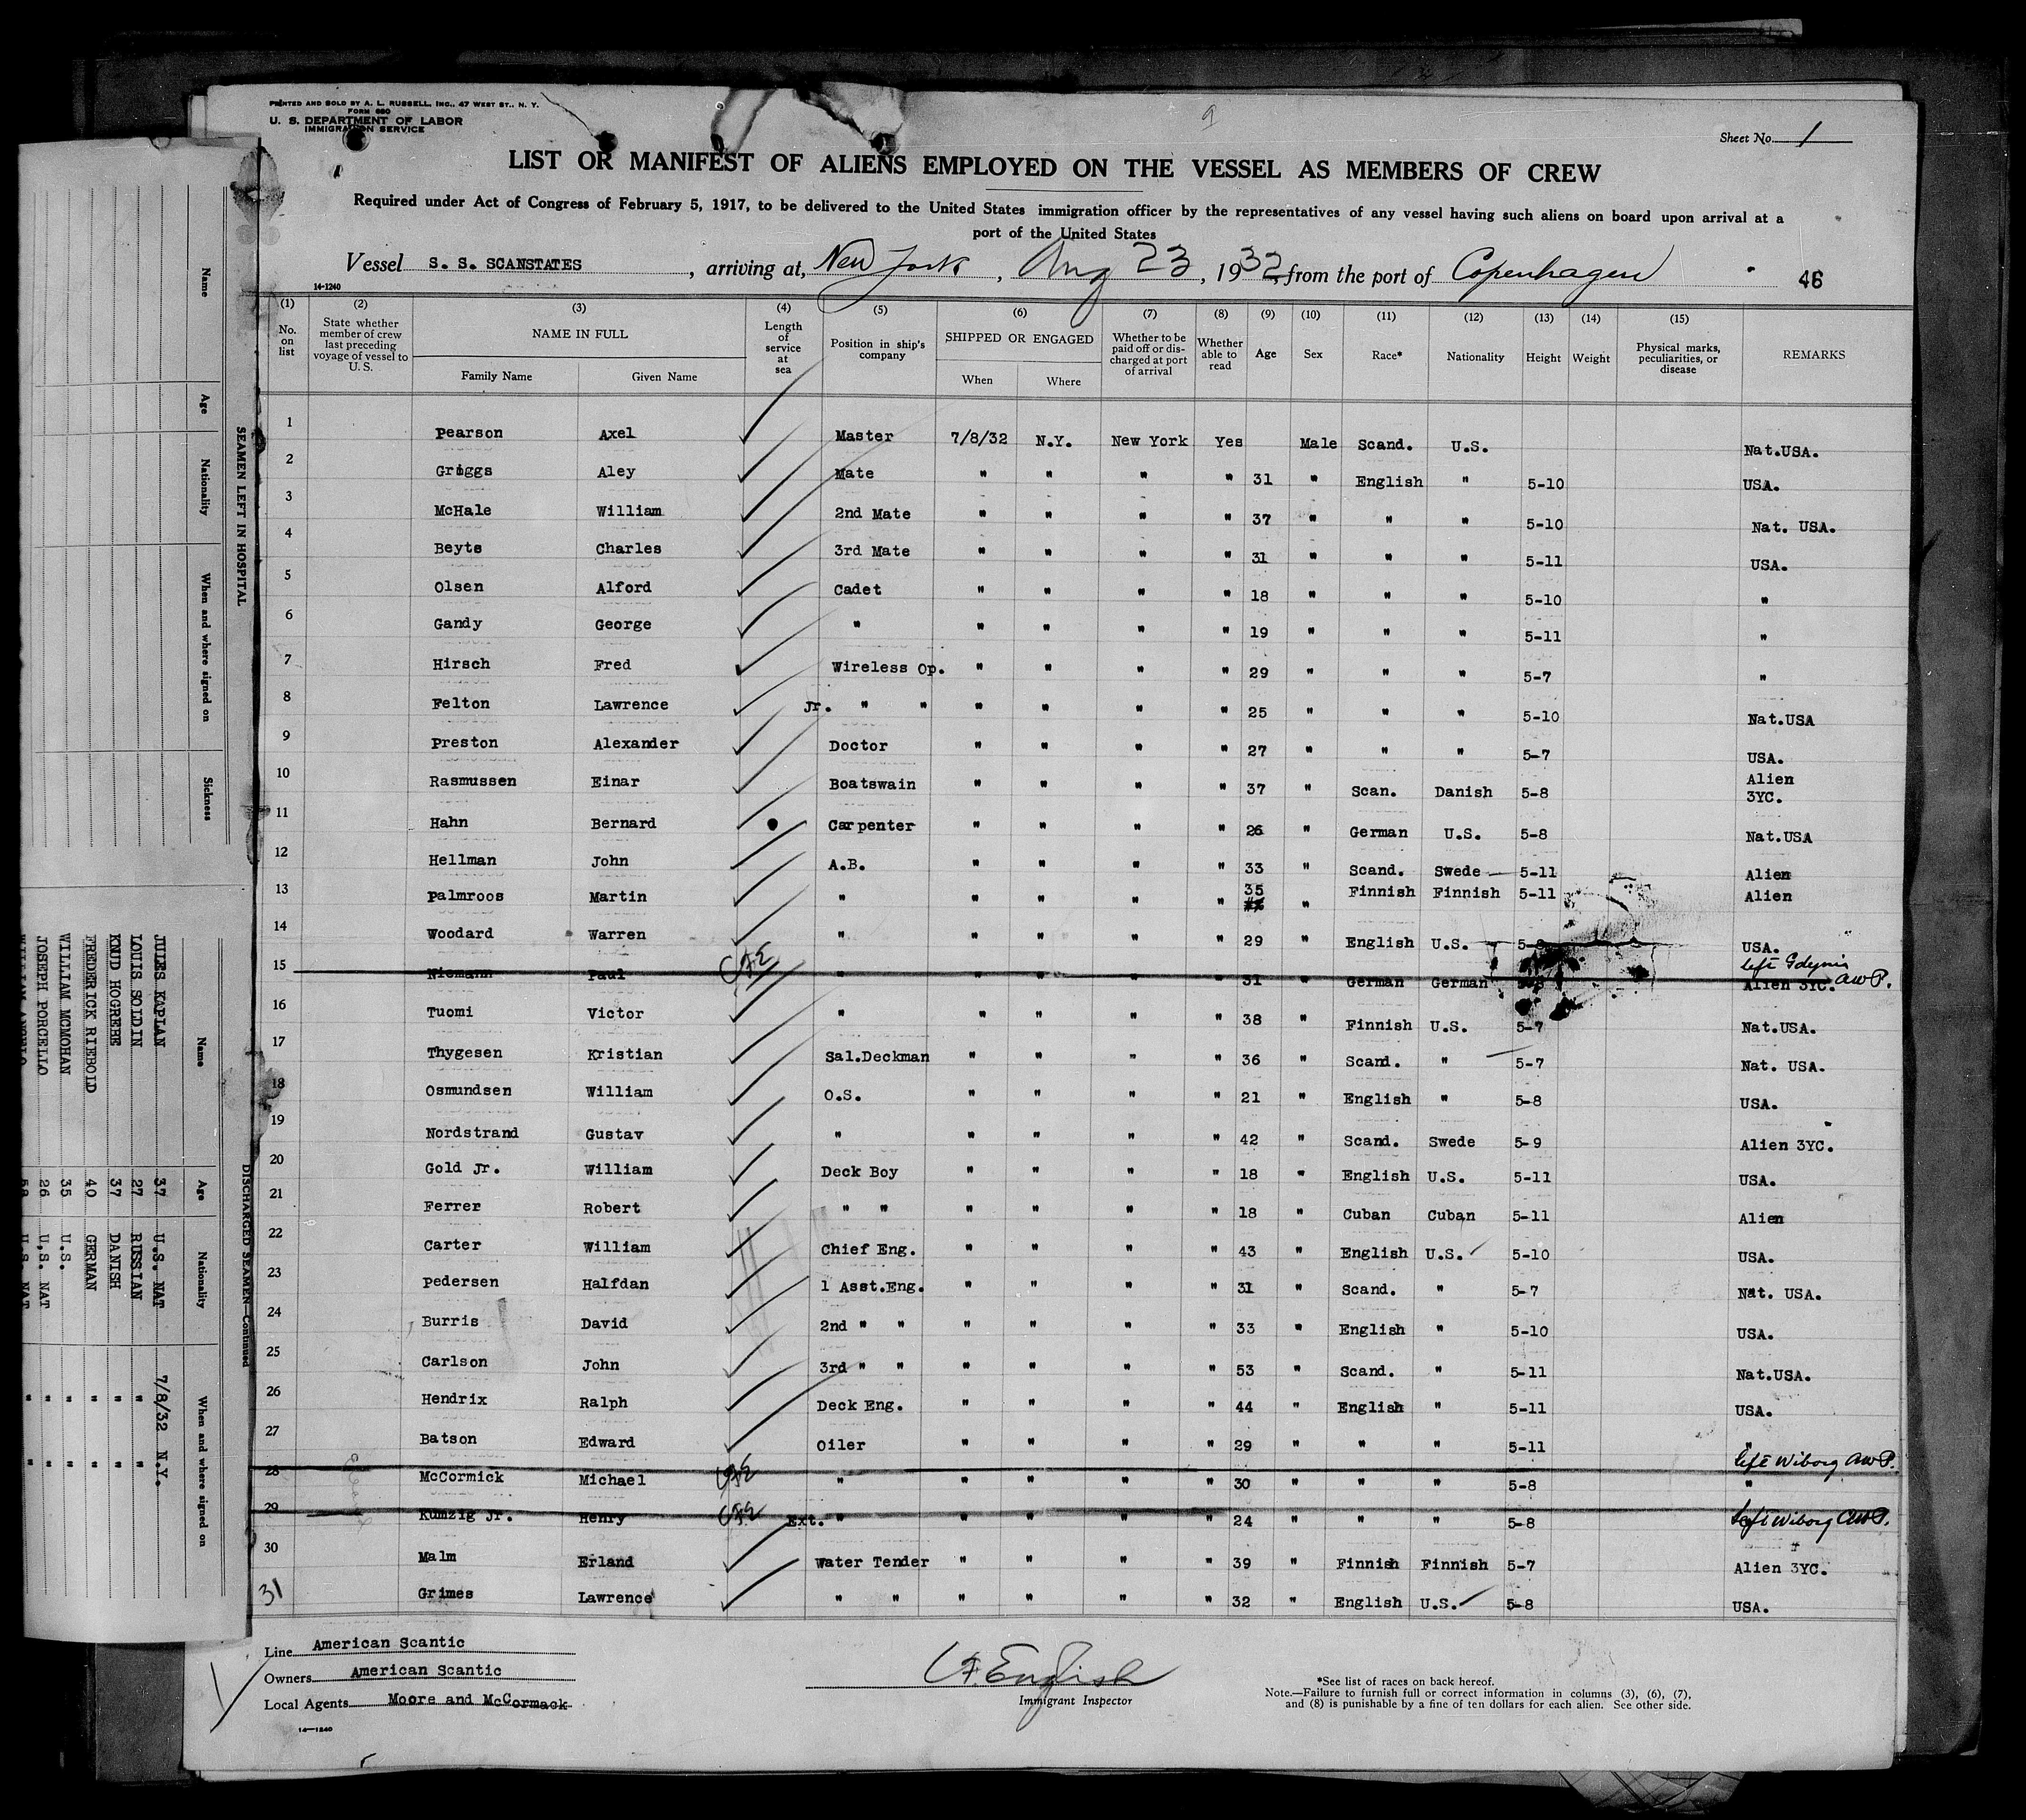 PRINTED AND SOLD BY A. L. RUSSELL, INC., 47 WEST ST., N. Y.
FORM 680
U. S. DEPARTMENT OF LABOR
IMMIGRATION SERVICE
9
Sheet No. 1
LIST OR MANIFEST OF ALIENS EMPLOYED ON THE VESSEL AS MEMBERS OF CREW
Required under Act of Congress of February 5, 1917, to be delivered to the United States immigration officer by the representatives of any vessel having such aliens on board upon arrival at a
port of the United States
Vessel S. S. SCANSTATES, arriving at, New York, Aug 23, 1932, from the port of Copenhagen
14-1240
46
(1) No. on list (2) State whether member of crew last preceding voyage of vessel to U.S. (3) NAME IN FULL Family Name Given Name (4) Length of service at sea (5) Position in ship's company (6) SHIPPED OR ENGAGED When Where (7) Whether to be paid off or discharged at port of arrival (8) Whether able to read (9) Age (10) Sex (11) Race* (12) Nationality (13) Height (14) Weight (15) Physical marks, peculiarities, or disease REMARKS
1 Pearson Axel Master 7/8/32 N.Y. New York Yes Male Scand. U.S. Nat.USA.
2 Griggs Aley Mate " " " " 31 " English " 5-10 USA.
3 McHale William 2nd Mate " " " " 37 " " " 5-10 Nat. USA.
4 Beyts Charles 3rd Mate " " " " 31 " " " 5-11 USA.
5 Olsen Alford Cadet " " " " 18 " " " 5-10 "
6 Gandy George " " " " " 19 " " " 5-11 "
7 Hirsch Fred Wireless Op. " " " " 29 " " " 5-7 "
8 Felton Lawrence Jr. " " " " " " 25 " " " 5-10 Nat.USA
9 Preston Alexander Doctor " " " " 27 " " " 5-7 USA.
10 Rasmussen Einar Boatswain " " " " 37 " Scan. Danish 5-8 Alien 3YC.
11 Hahn Bernard Carpenter " " " " 26 " German U.S. 5-8 Nat.USA
12 Hellman John A.B. " " " " 33 " Scand. Swede 5-11 Alien
13 Palmroos Martin " " " " " 35 " Finnish Finnish 5-11 Alien
14 Woodard Warren " " " " " 29 " English U.S. 5-8 USA.
15 Niemann Paul CFE " " " " " 31 " German German left Gdynia AWP. Alien 3YC.
16 Tuomi Victor " " " " " 38 " Finnish U.S. 5-7 Nat.USA.
17 Thygesen Kristian Sal.Deckman " " " " 36 " Scand. " 5-7 Nat. USA.
18 Osmundsen William O.S. " " " " 21 " English " 5-8 USA.
19 Nordstrand Gustav " " " " " 42 " Scand. Swede 5-9 Alien 3YC.
20 Gold Jr. William Deck Boy " " " " 18 " English U.S. 5-11 USA.
21 Ferrer Robert " " " " " " 18 " Cuban Cuban 5-11 Alien
22 Carter William Chief Eng. " " " " 43 " English U.S. 5-10 USA.
23 Pedersen Halfdan 1 Asst.Eng. " " " " 31 " Scand. " 5-7 Nat. USA.
24 Burris David 2nd " " " " " " 33 " English " 5-10 USA.
25 Carlson John 3rd " " " " " " 53 " Scand. " 5-11 Nat.USA.
26 Hendrix Ralph Deck Eng. " " " " 44 " English " 5-11 USA.
27 Batson Edward Oiler " " " " 29 " " " 5-11 "
28 McCormick Michael CFE " " " " " 30 " " " 5-8 left Wiborg AWP. "
29 Kumzig Jr. Henry CFE Ext. " " " " " 24 " " " 5-8 left Wiborg AWP.
30 Malm Erland Water Tender " " " " 39 " Finnish Finnish 5-7 Alien 3YC.
31 Grimes Lawrence " " " " " " 32 " English U.S. 5-8 USA.
Line American Scantic
Owners American Scantic
Local Agents Moore and McCormack
14-1240
CF English
Immigrant Inspector
*See list of races on back hereof.
Note.—Failure to furnish full or correct information in columns (3), (6), (7),
and (8) is punishable by a fine of ten dollars for each alien. See other side.
SEAMEN LEFT IN HOSPITAL
Name Age Nationality When and where signed on Sickness
DISCHARGED SEAMEN—Continued
Name Age Nationality When and where signed on
JULES KAPLAN 37 U.S. NAT 7/8/32 N.Y.
LOUIS SOIDIN 27 RUSSIAN " "
KNUD HOGREHE 37 DANISH " "
FREDERICK RIEBOLD 40 GERMAN " "
WILLIAM MCMOHAN 35 U.S. " "
JOSEPH PORCELLO 26 U.S. NAT " "